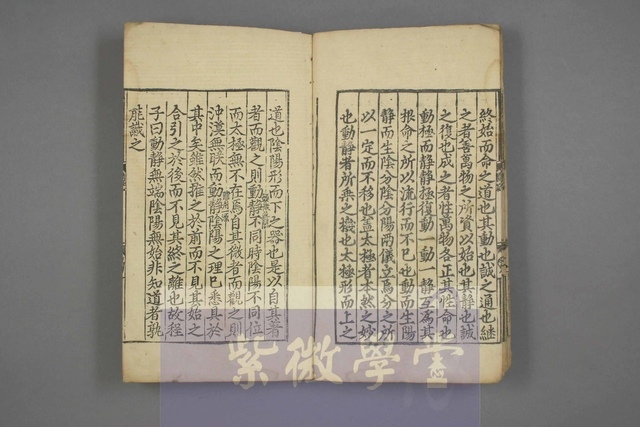 終始而命之道也其動也誠之通也繼
之者善萬物之所資以始也其靜也誠
之復也成之者性萬物各正其性命也
動極而靜靜極復動一動一靜互爲其
根命之所以流行而不已也動而生陽
靜而生陰分陰分陽兩儀立焉分之所
以一定而不移也蓋太極者本然之妙
也動靜者所乘之機也太極形而上之
道也陰陽形而下之器也是以自其著
者而觀之則動靜不同時陰陽不同位
而太極無不在焉自其微者而觀之則
沖漠無朕而動靜陰陽之理已悉具於
其中矣雖然推之於前而不見其始之
合引之於後而不見其終之離也故程
子曰動靜無端陰陽無始非知道者孰
能識之
紫微學堂